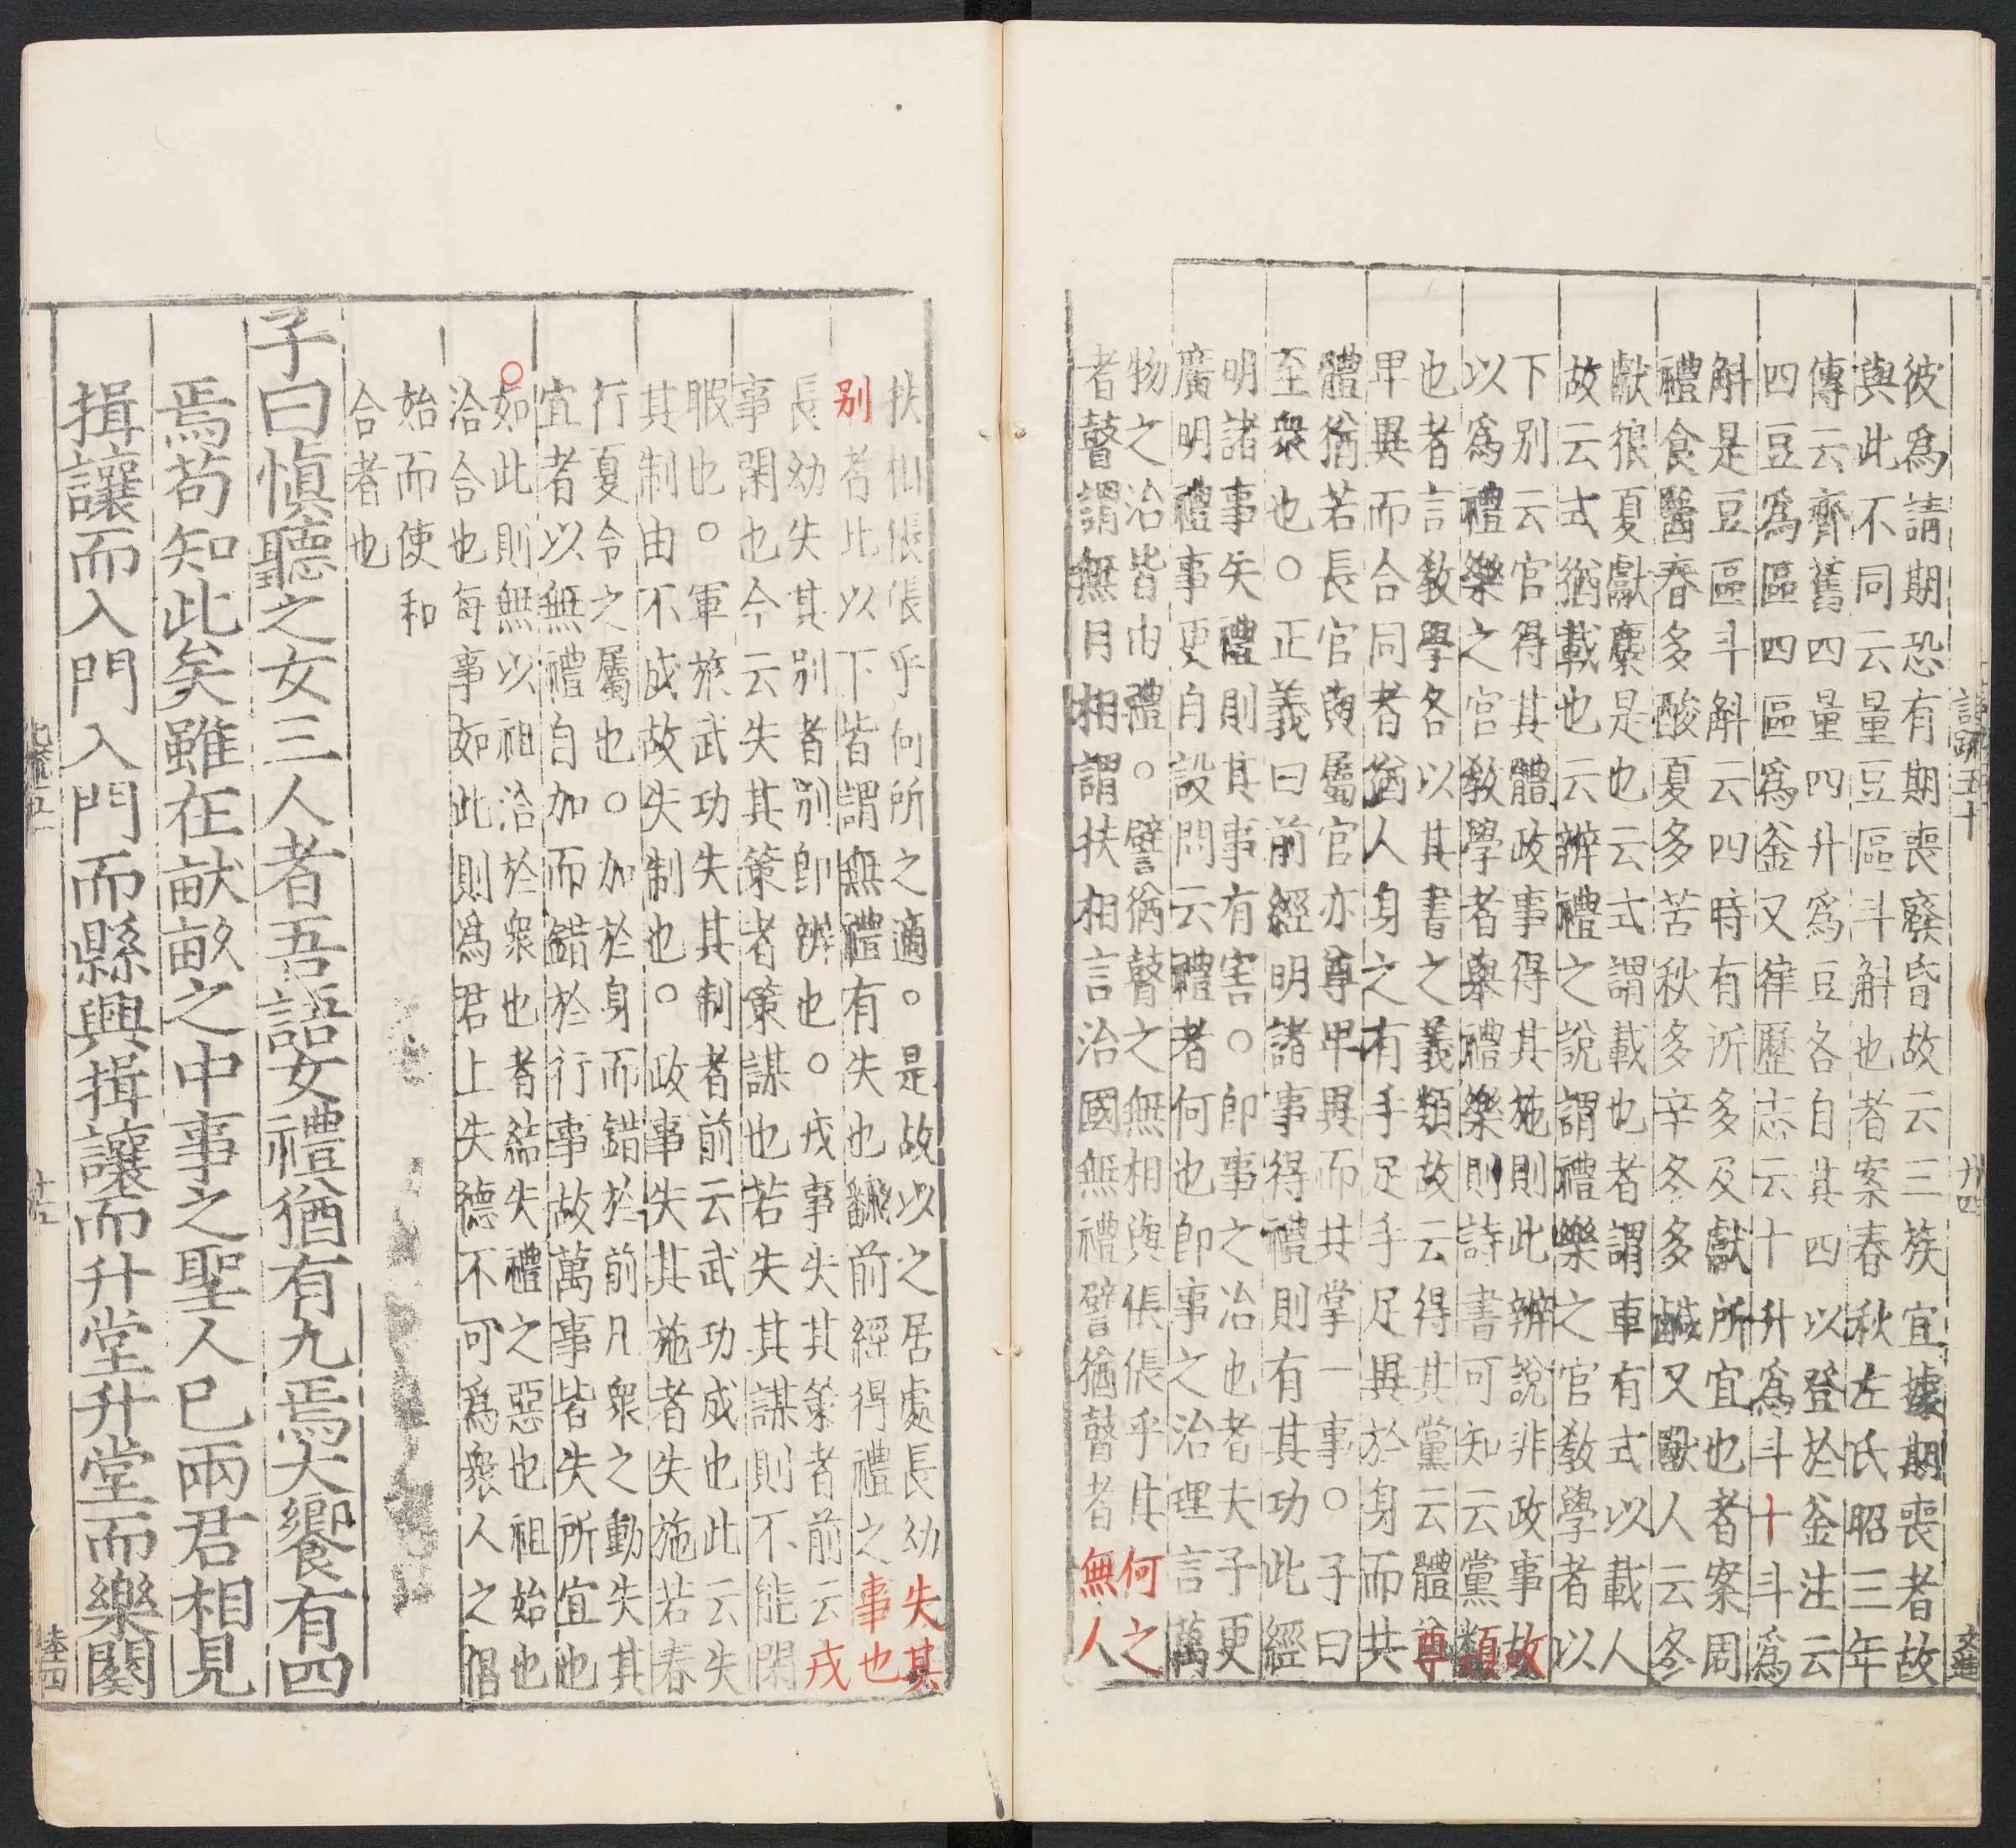 彼爲請期恐有期喪廢昏故云三族宜據期喪者故
與此不同云量豆區斗斛也者案春秋左氏昭三年
傳云齊舊四量四升爲豆各自其四以登於釜注云
四豆爲區四區爲釜又律歷志云十升爲斗十斗爲
斛是豆區斗斛云四時有所多及獻所宜也者案周
禮食醫春多酸夏多苦秋多辛冬多鹹又獸人云冬
獻狼夏獻麋是也云式謂載也者謂車有式以載人
故云式猶載也云辨禮之說謂禮樂之官敎學者以
下別云官得其體政事得其施則此辨說非政事故
以爲禮樂之官敎學者舉禮樂則詩書可知云黨類
也者言敎學各以其書之義類故云得其黨云體尊
卑異而合同者猶人身之有手足手足異於身而共
體猶若長官與屬官亦尊卑異而共掌一事○子曰
至衆也○正義曰前經明諸事得禮則有其功此經
明諸事失禮則其事有害○卽事之治也者夫子更
廣明禮事更自設問云禮者何也卽事之治理言萬
物之治皆由禮○譬猶瞽之無相與倀倀乎其何之
者瞽謂無目相謂扶相言治國無禮譬猶瞽者無人
扶相倀倀乎何所之適○是故以之居處長幼失其
別者此以下皆謂無禮有失也飜前經得禮之事也
長幼失其別者別卽辨也○戎事失其策者前云戎
事閑也今云失其策者策謀也若失其謀則不能閑
暇也○軍旅武功失其制者前云武功成也此云失
其制由不成故失制也○政事失其施者失施若春
行夏令之屬也○加於身而錯於前凡衆之動失其
宜者以無禮自加而錯於行事故萬事皆失所宜也
○如此則無以祖洽於衆也者結失禮之惡也祖始也
洽合也每事如此則爲君上失德不可爲衆人之倡
始而使和
合者也
子曰愼聽之女三人者吾語女禮猶有九焉大饗有四
焉苟知此矣雖在畎畝之中事之聖人已兩君相見
揖讓而入門入門而縣興揖讓而升堂升堂而樂闋